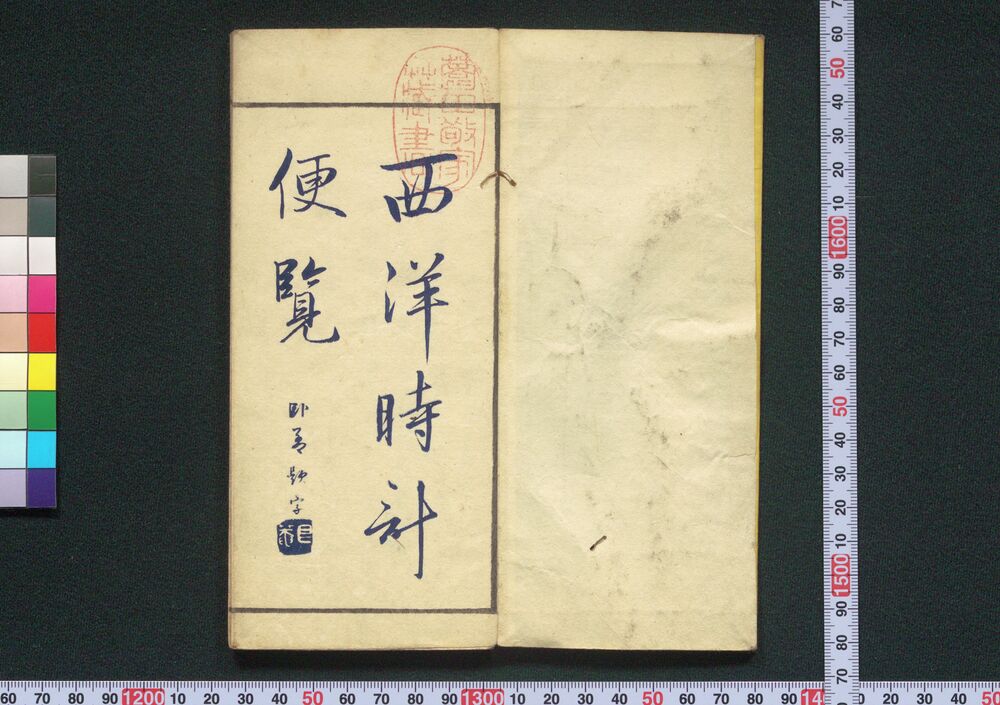 西洋時計
便覧
題字
60 70 80 90 1200 10 20 30 40 50 60 70 80 90 1300 10 20 30 40 50 60 70 80 90 20 30 40
60 50 40 30 20 10 1600 90 80 70 60 50 40 30 20 10 1500 90 80 70